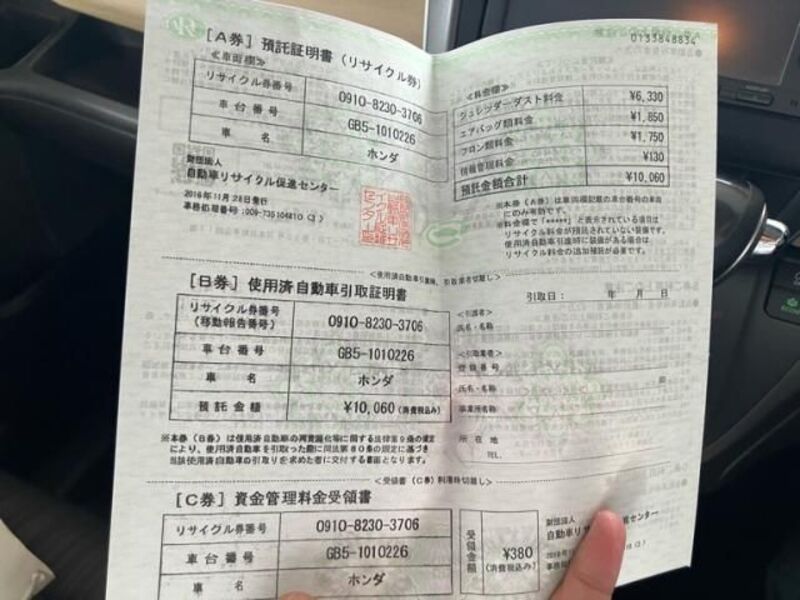 0133848834
[A券] 預託証明書 (リサイクル券)
≪車両欄≫
リサイクル券番号 0910-8230-3706
車台番号 GB5-1010226
車名 ホンダ
財団法人
自動車リサイクル促進センター
2016年11月28日発行
≪料金欄≫
シュレッダーダスト料金 ¥6,330
エアバッグ類料金 ¥1,850
フロン類料金 ¥1,750
情報管理料金 ¥130
預託金額合計 ¥10,060
※本券(A券)は車両欄記載の車台番号の車両
にのみ有効です。
※料金欄で「*****」と表示されている項目は
リサイクル料金が預託されていない装備です。
使用済自動車引渡時に装備がある場合は
リサイクル料金の追加預託が必要です。
[B券] 使用済自動車引取証明書
リサイクル券番号
(移動報告番号) 0910-8230-3706
車台番号 GB5-1010226
車名 ホンダ
預託金額 ¥10,060 (消費税込み)
※本券(B券)は使用済自動車の再資源化等に関する法律第9条の規定
により、使用済自動車を引取った際に同法第80条の規定に基づき
当該使用済自動車の引取りを求めた者に交付する書面となります。
引取日: 年 月 日
≪引渡者≫
氏名・名称
≪引取業者≫
登録番号
氏名・名称 印
事業所名称
所在地
TEL.
<受領書(C券)利用時切離し>
[C券] 資金管理料金受領書
リサイクル券番号 0910-8230-3706
車台番号 GB5-1010226
車名 ホンダ
受領金額 ¥380
(消費税込み)
財団法人